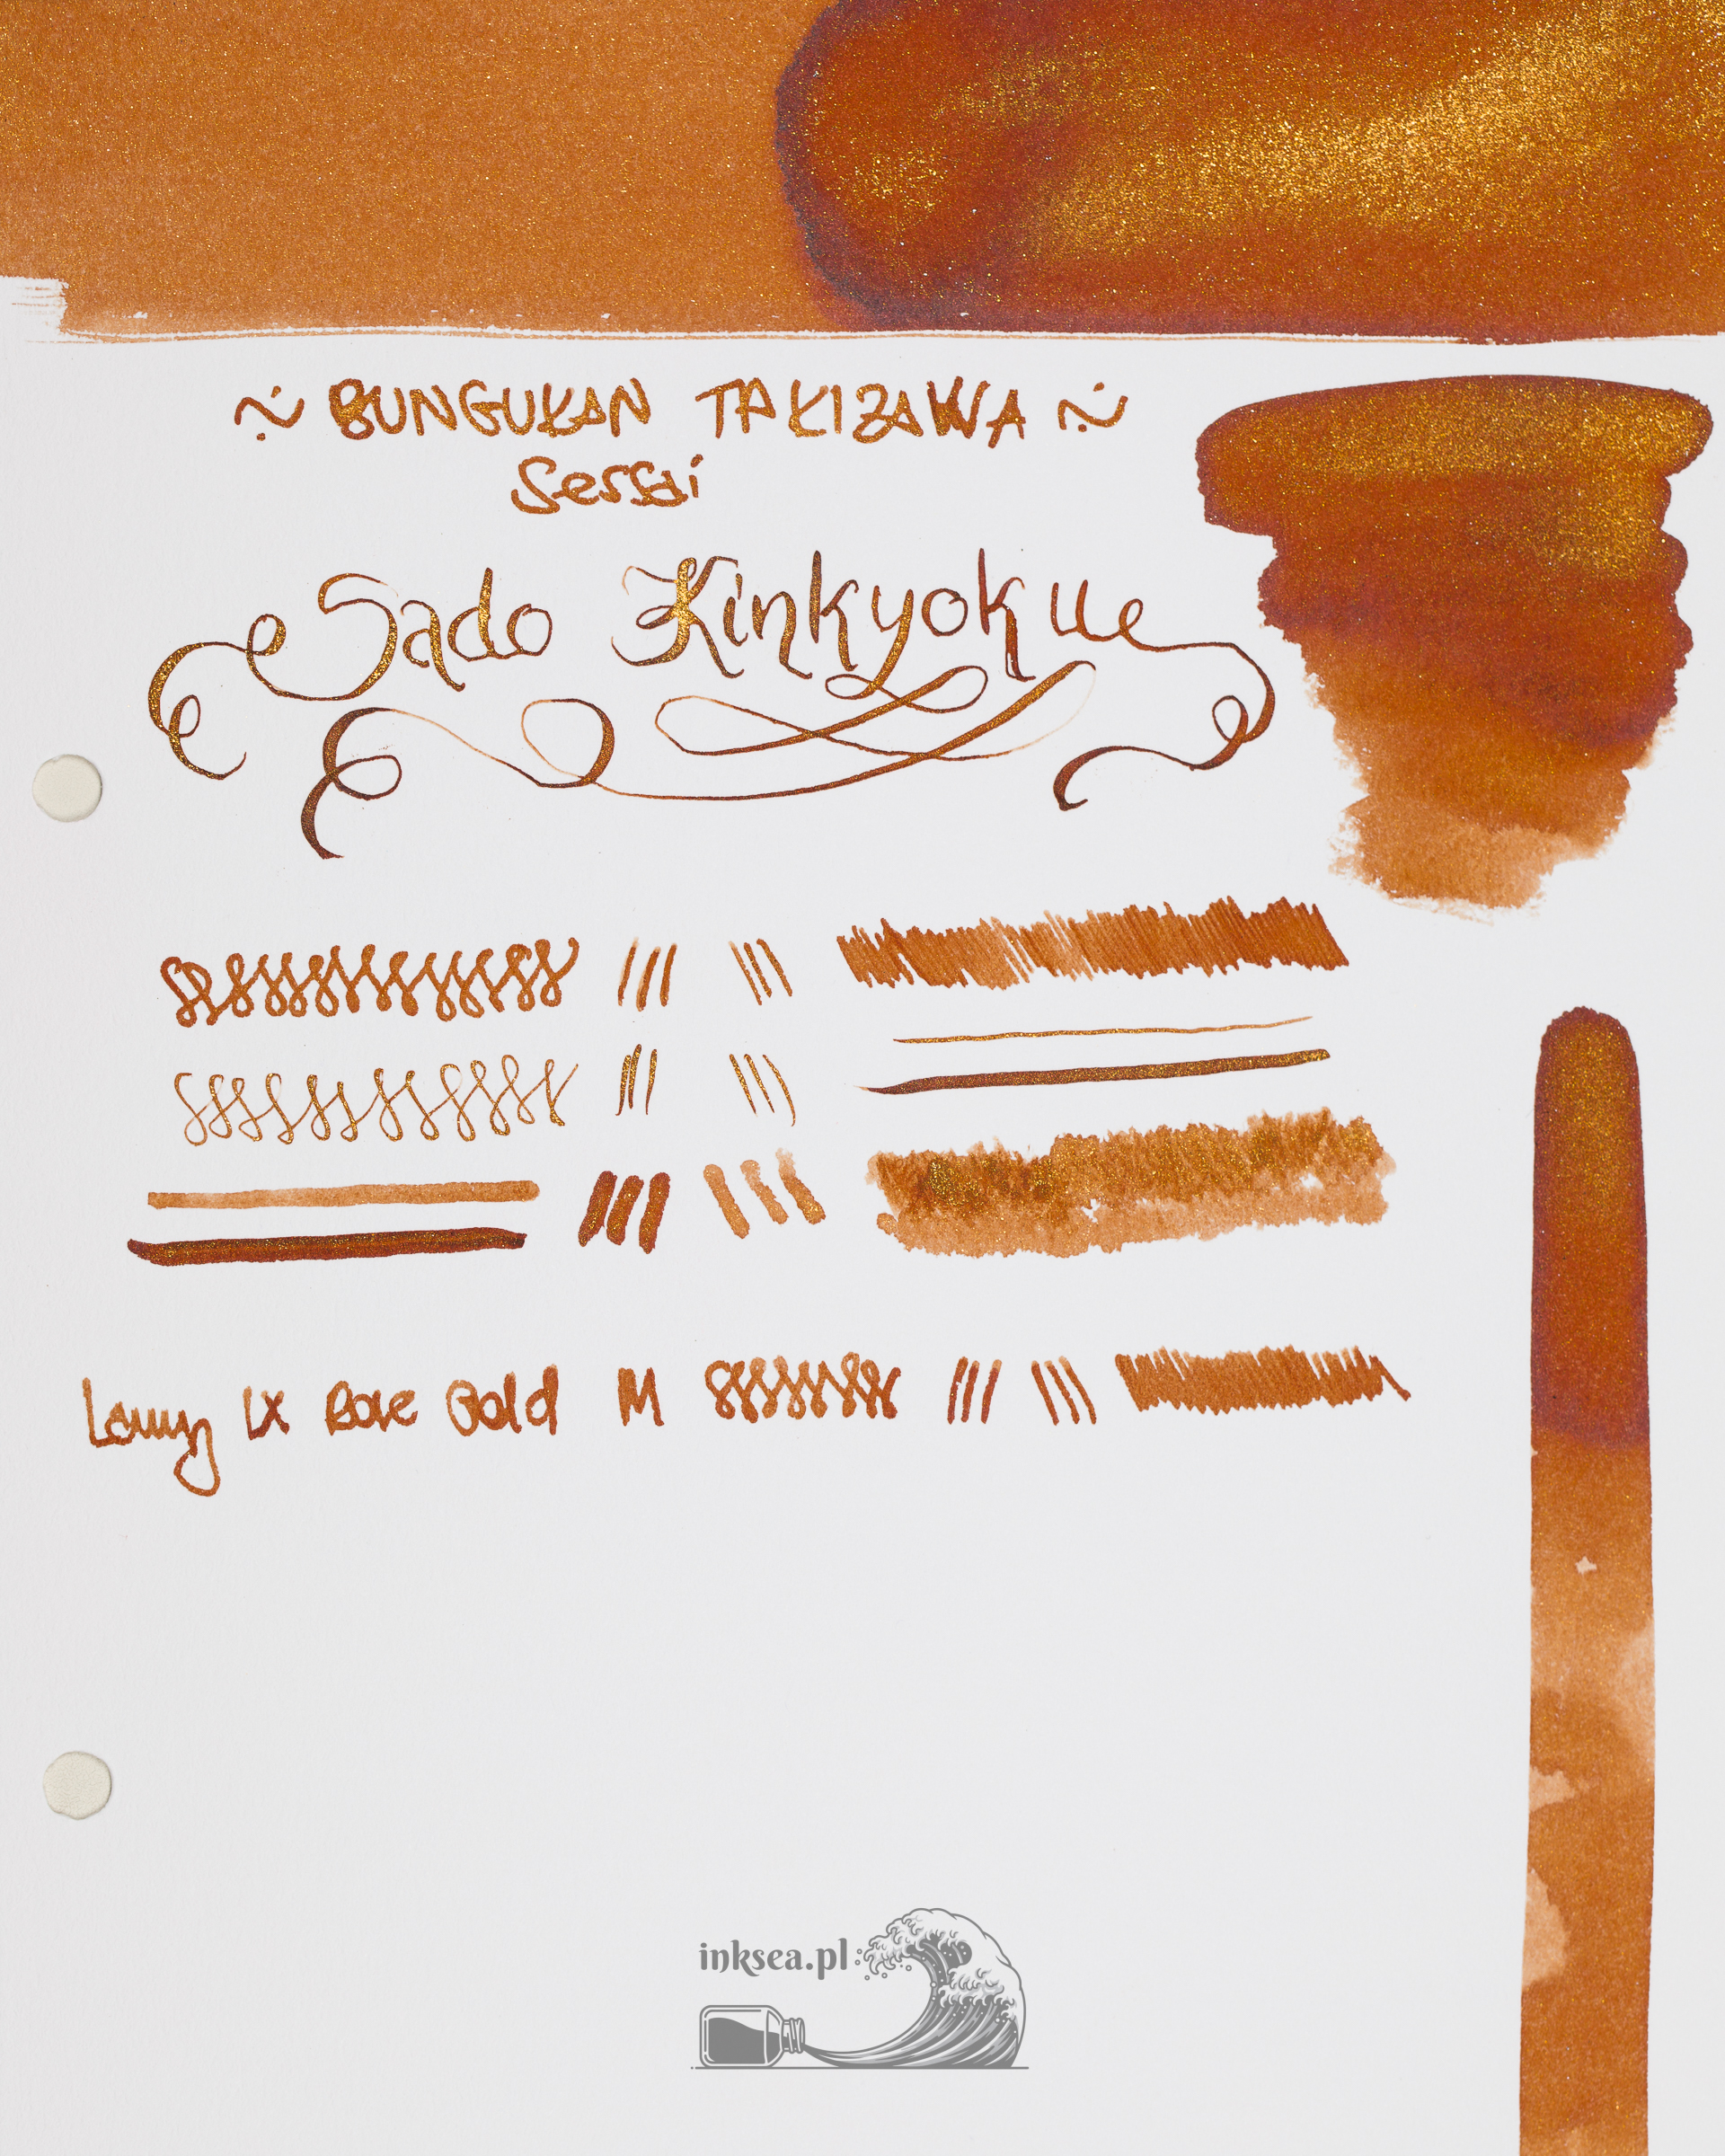 ~ BUNGUKAN TAKIZAWA ~
Sessai
Sado Kinkyoku
Lamy LX Rose Gold M
inksea.pl